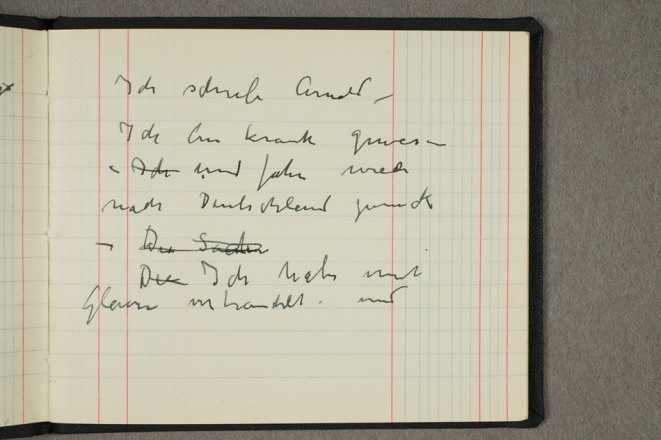 Ich schreibe Arnold –
Ich bin krank gewesen
Ich und fahre wieder
nach Deutschland zurück
– Die Sachen
Die Ich habe mit
verhandelt. und